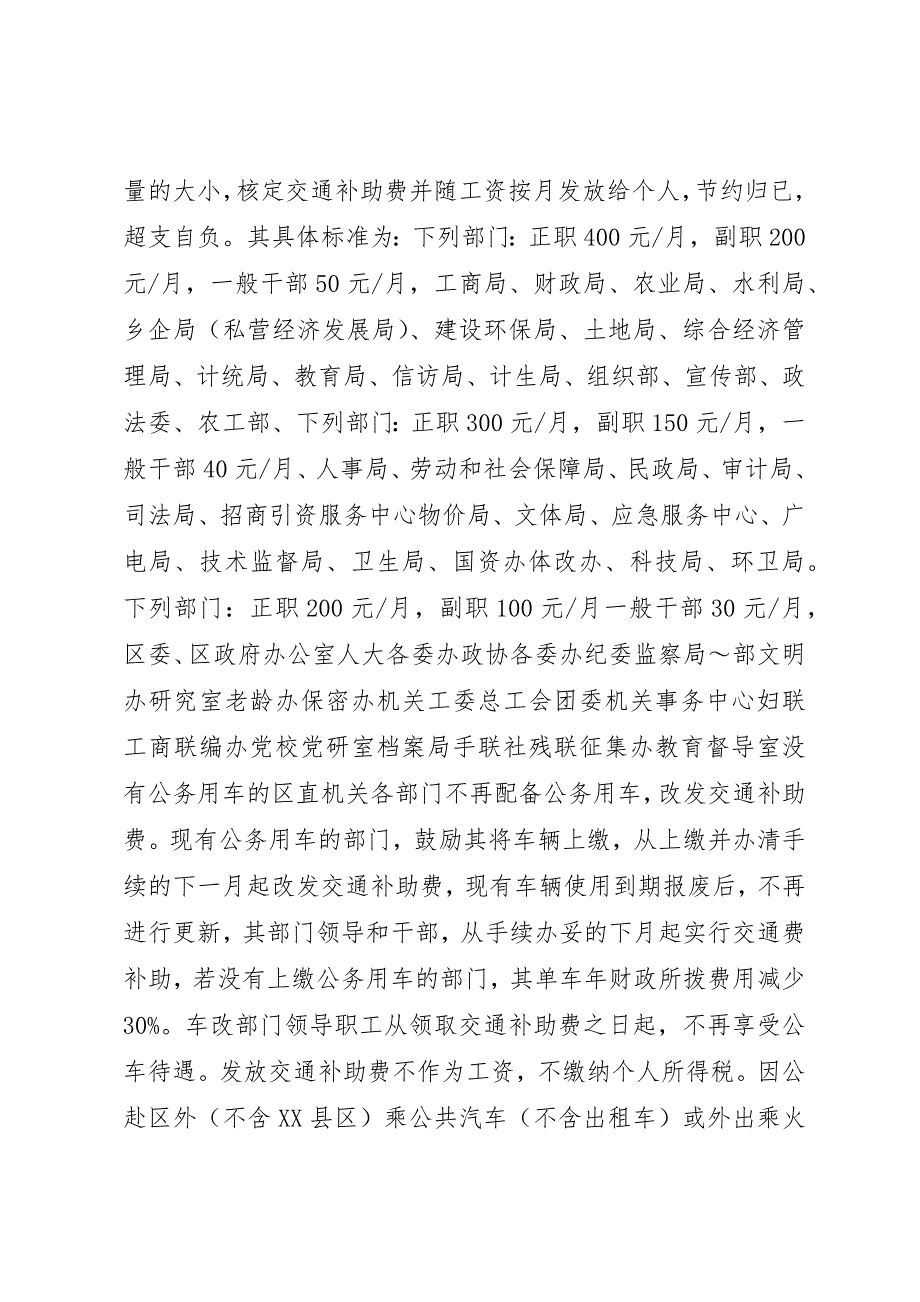 量的大小，核定交通补助费并随工资按月发放给个人，节约归已，
超支自负。其具体标准为：下列部门：正职 400 元/月，副职 200
元/月，一般干部 50 元/月，工商局、财政局、农业局、水利局、
乡企局（私营经济发展局）、建设环保局、土地局、综合经济管
理局、计统局、教育局、信访局、计生局、组织部、宣传部、政
法委、农工部、下列部门：正职 300 元/月，副职 150 元/月，一
般干部 40 元/月、人事局、劳动和社会保障局、民政局、审计局、
司法局、招商引资服务中心物价局、文体局、应急服务中心、广
电局、技术监督局、卫生局、国资办体改办、科技局、环卫局。
下列部门：正职 200 元/月，副职 100 元/月一般干部 30 元/月，
区委、区政府办公室人大各委办政协各委办纪委监察局～部文明
办研究室老龄办保密办机关工委总工会团委机关事务中心妇联
工商联编办党校党研室档案局手联社残联征集办教育督导室没
有公务用车的区直机关各部门不再配备公务用车，改发交通补助
费。现有公务用车的部门，鼓励其将车辆上缴，从上缴并办清手
续的下一月起改发交通补助费，现有车辆使用到期报废后，不再
进行更新，其部门领导和干部，从手续办妥的下月起实行交通费
补助，若没有上缴公务用车的部门，其单车年财政所拨费用减少
30%。车改部门领导职工从领取交通补助费之日起，不再享受公
车待遇。发放交通补助费不作为工资，不缴纳个人所得税。因公
赴区外（不含 XX 县区）乘公共汽车（不含出租车）或外出乘火